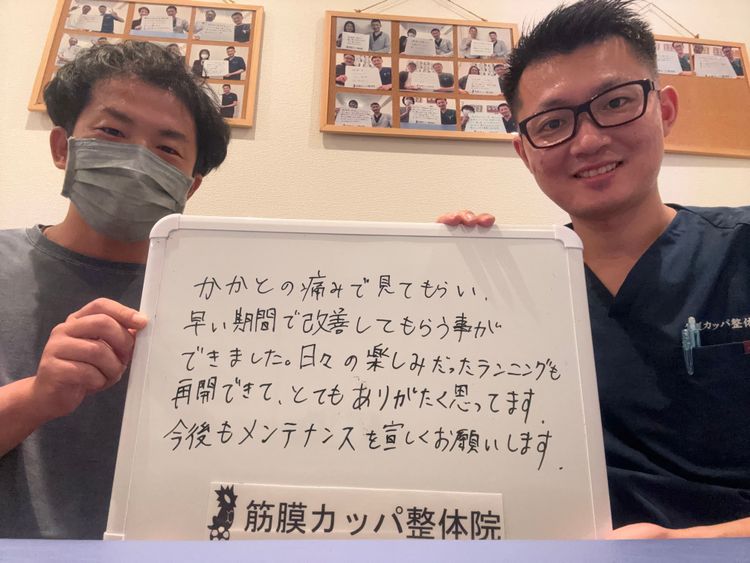 かかとの痛みで見てもらい、
早い期間で改善してもらう事が
できました。日々の楽しみだったランニングも
再開できて、とてもありがたく思ってます。
今後もメンテナンスを宜しくお願いします。
筋膜カッパ整体院
カッパ整体